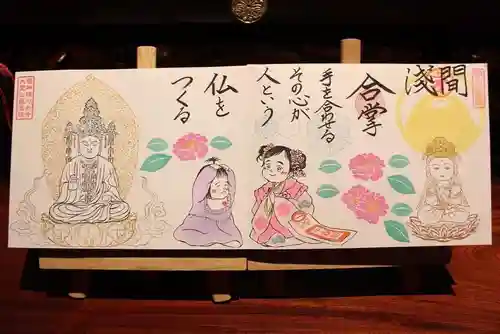 浅間
合掌
手を合わせる
その心が
人という
仏を
つくる